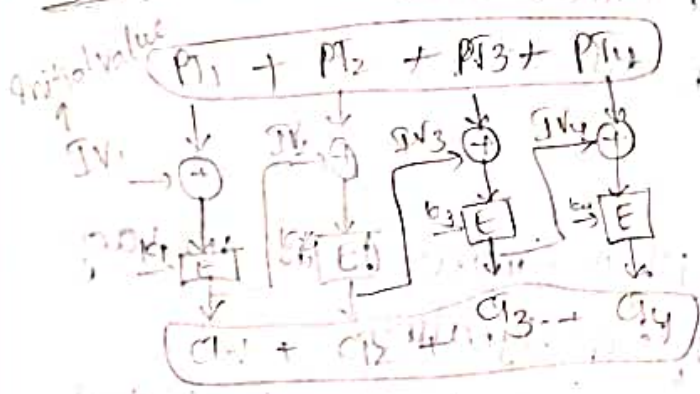 Initial value
PT1 + PT2 + PT3 + PT12
IV1 + IV2 + IV3 + IV4 +
K1 E K2 E K3 E K4 E
CT1 + CT2 + CT3 -- + CT4